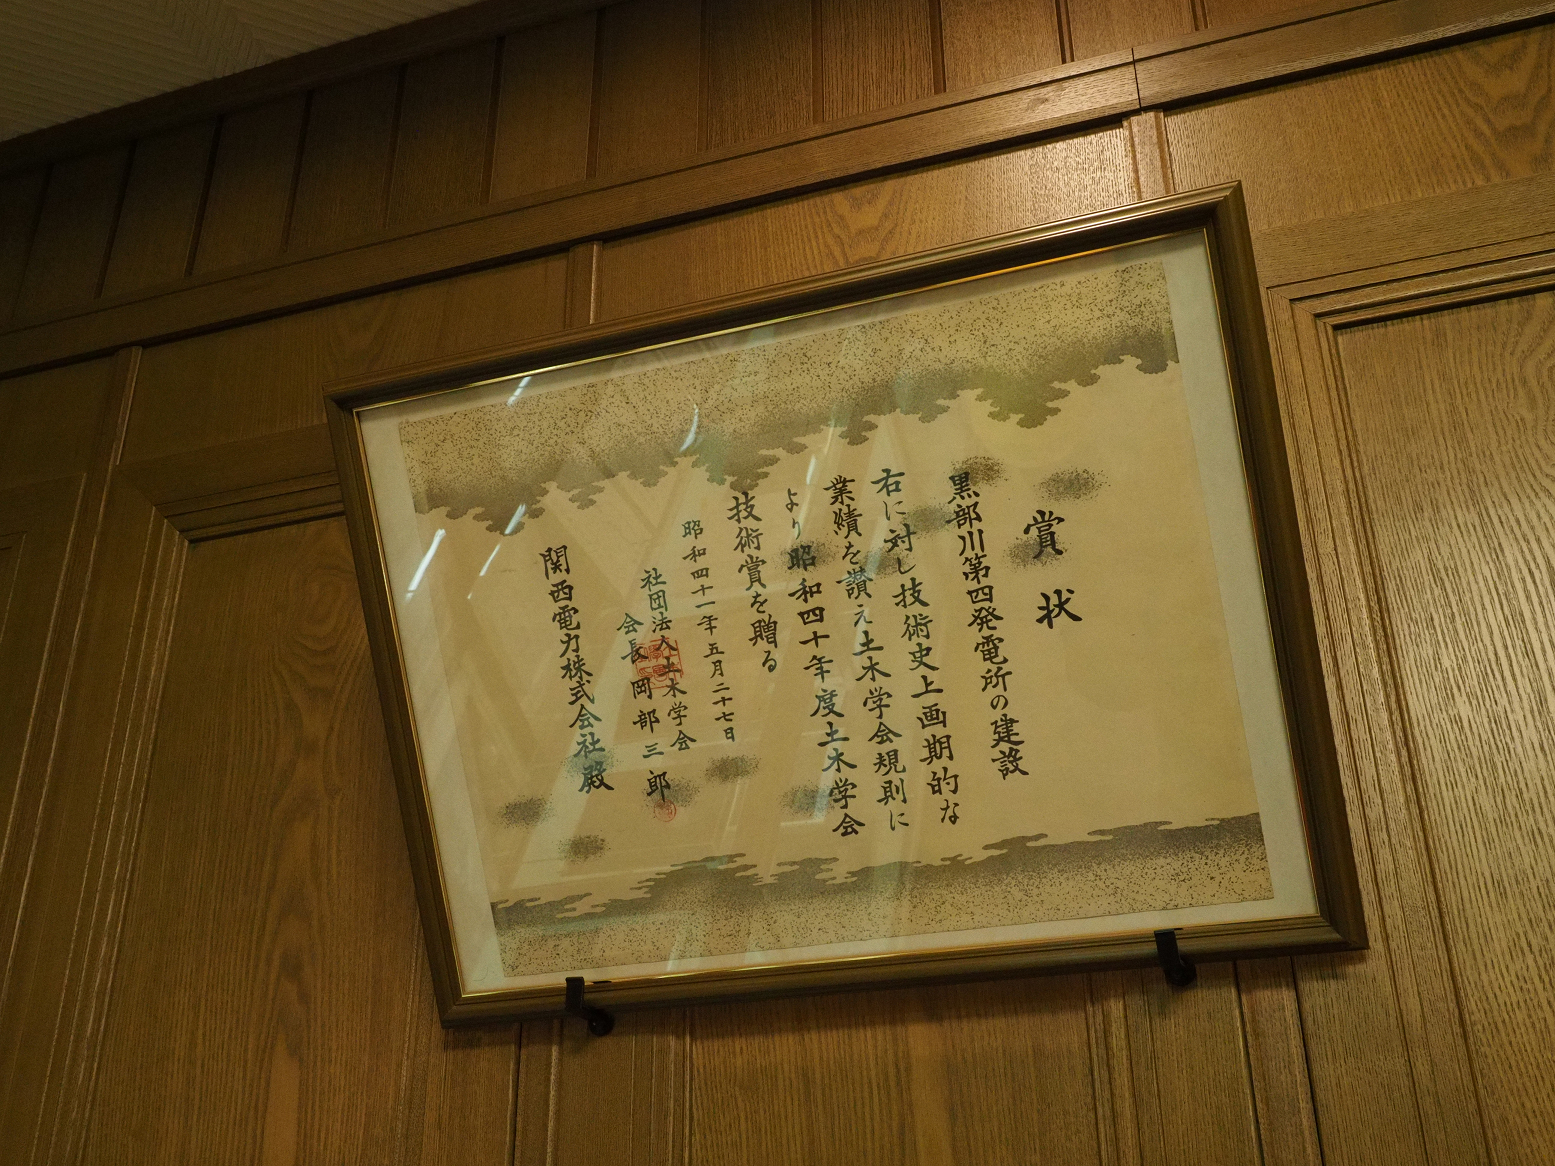 賞状
黒部川第四発電所の建設
右に対し技術史上画期的な
業績を讃え土木学会規則に
より昭和四十年度土木学会
技術賞を贈る
昭和四十一年五月二十七日
社団法人土木学会
会長岡部三郎
関西電力株式会社殿